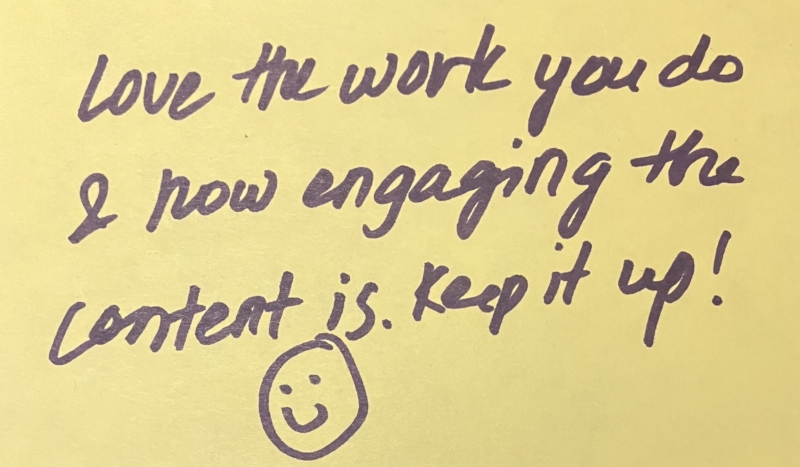 Love the work you do
& how engaging the
content is. Keep it up!